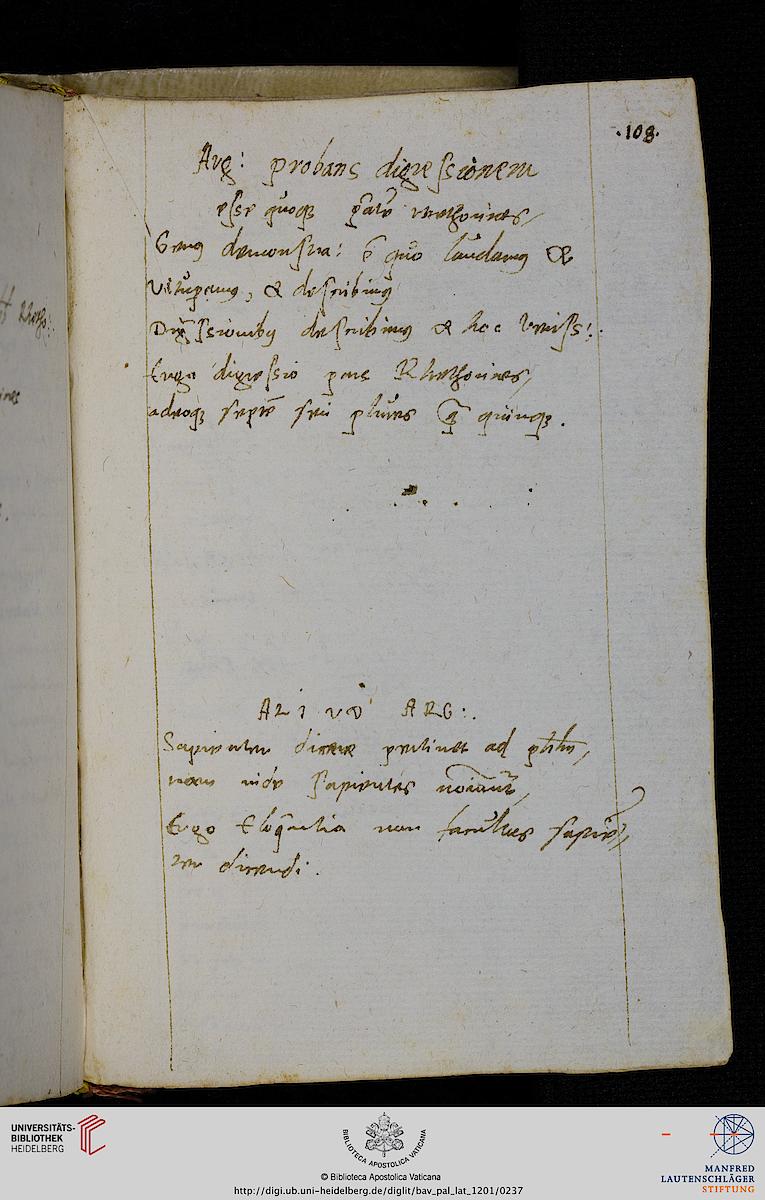 .108.
Arg: probans digressionem
esse quoq; p̃alẽ rrethorices,
Genus demonstra: ẽ quo laudamus &
vituperamus, & describimus
Digressionibus describimus & hoc veriss:.
Ergo digressio pars Rhethorices,
adeoq; septẽ seu plures q̃ quinq;.
ALIVD ARG:.
Sapienter dicere pertinet ad
sapientes
Ergo Eloquẽtia non facultas sapiẽ,,
ter dicendi.
UNIVERSITÄTS-
BIBLIOTHEK
HEIDELBERG
BIBLIOTECA APOSTOLICA VATICANA
© Biblioteca Apostolica Vaticana
http://digi.ub.uni-heidelberg.de/diglit/bav_pal_lat_1201/0237
MANFRED
LAUTENSCHLÄGER
STIFTUNG